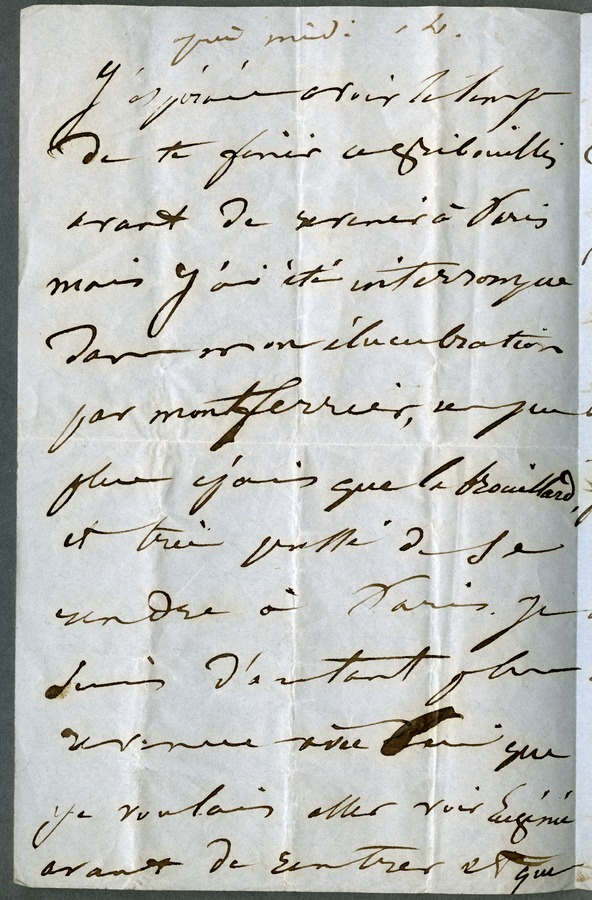 midi
J'espérais avoir le temps
de te finir ce gribouillis
avant de revenir à Paris
mais j'ai été interrompue
dans mon élucubration
par montferrier, un peu
plus épais que le brouillard,
et très pressé de se
rendre à Paris. je
suis d'autant plus
revenue avec lui que
je voulais aller voir Eugénie
avant de rentrer et que